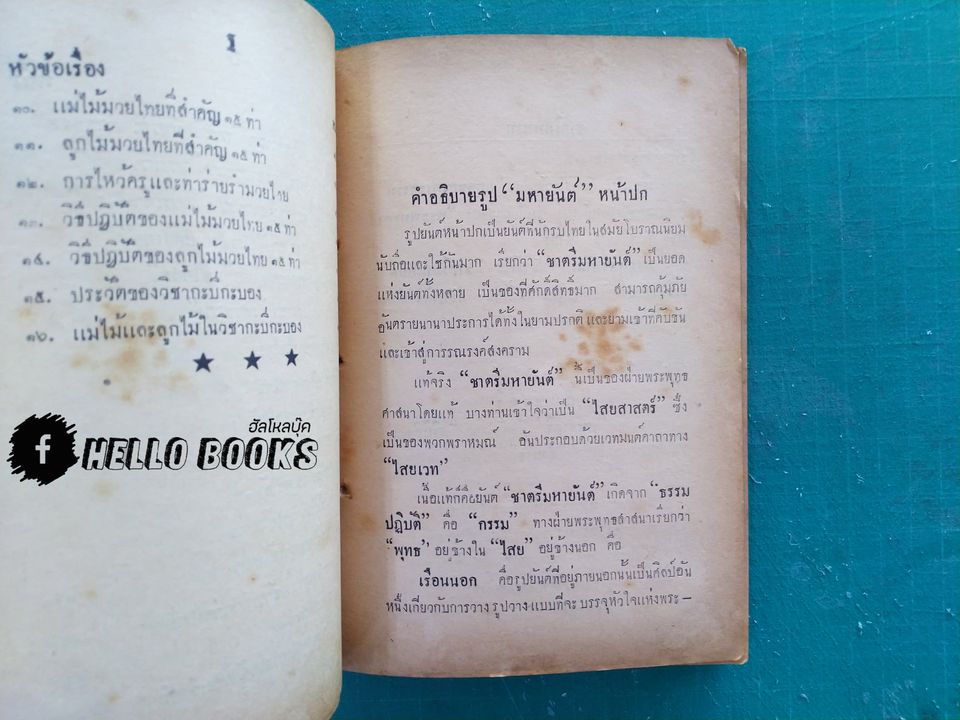 ฐ
หัวข้อเรื่อง
๑๐. แม่ไม้มวยไทยที่สำคัญ ๑๕ ท่า
๑๑. ลูกไม้มวยไทยที่สำคัญ ๑๕ ท่า
๑๒. การไหว้ครูและท่าร่ายรำมวยไทย
๑๓. วิธีปฏิบัติของแม่ไม้มวยไทย ๑๕ ท่า
๑๔. วิธีปฏิบัติของลูกไม้มวยไทย ๑๕ ท่า
๑๕. ประวัติของวิชากะบี่กะบอง
๑๖. แม่ไม้และลูกไม้ในวิชากะบี่กะบอง
★ ★ ★
ฮัลโหลบุ๊ค
f HELLO BOOKS
คำอธิบายรูป “มหายันต์” หน้าปก
รูปยันต์หน้าปกเป็นยันต์ที่นักรบไทยในสมัยโบราณนิยม
นับถือและใช้กันมาก เรียกว่า “ชาตรีมหายันต์” เป็นยอด
แห่งยันต์ทั้งหลาย เป็นของที่ศักดิ์สิทธิ์มาก สามารถคุ้มภัย
อันตรายนานาประการได้ทั้งในยามปรกติ และยามเข้าที่คับขัน
และเข้าสู่การรณรงค์สงคราม
แท้จริง “ชาตรีมหายันต์” นี้เป็นของฝ่ายพระพุทธ
ศาสนาโดยแท้ บางท่านเข้าใจว่าเป็น “ไสยสาสตร์” ซึ่ง
เป็นของพวกพราหมณ์ อันประกอบด้วยเวทมนต์คาถาทาง
“ไสยเวท”
เนื้อแท้ก็คือยันต์ “ชาตรีมหายันต์” เกิดจาก “ธรรม
ปฏิบัติ” คือ “กรรม” ทางฝ่ายพระพุทธสาสนาเรียกว่า
“พุทธ’ อยู่ข้างใน “ไสย” อยู่ข้างนอก คือ
เรือนนอก คือรูปยันต์ที่อยู่ภายนอกนั้นเป็นศิลป์อัน
หนึ่งเกี่ยวกับการวาง รูปวาง แบบที่จะ บรรจุหัวใจแห่งพระ –